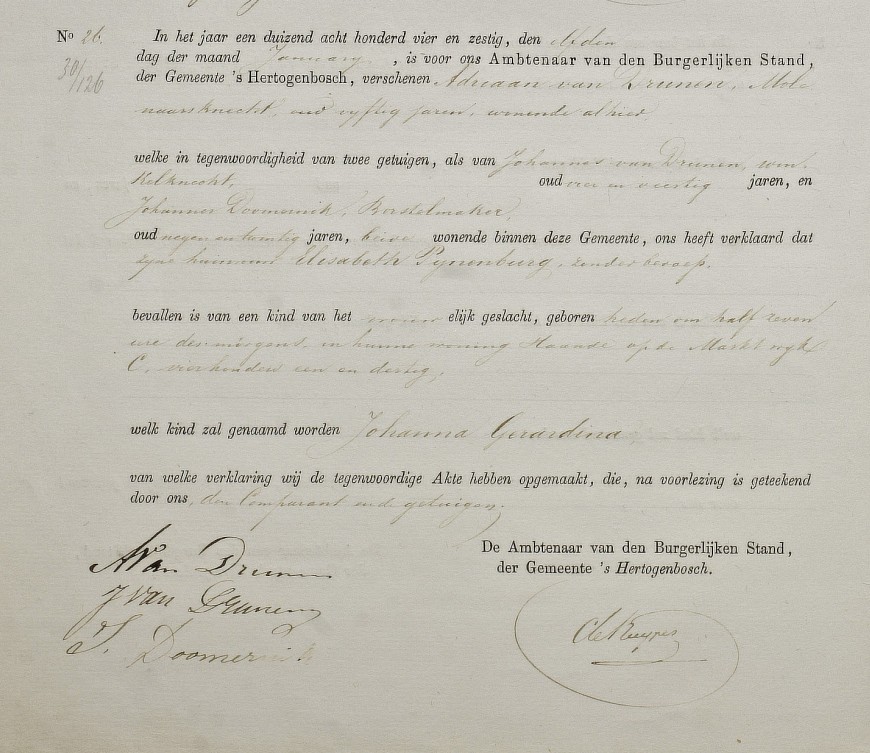 No 26. In het jaar een duizend acht honderd vier en zestig, den elfden
30/126 dag der maand January, is voor ons Ambtenaar van den Burgerlijken Stand,
der Gemeente 's Hertogenbosch, verschenen Adriaan van Drunen, Mole
naarsknecht, oud vyftig jaren, wonende alhier,
welke in tegenwoordigheid van twee getuigen, als van Johannes van Drunen, win-
kelknecht, oud vier en veertig jaren, en
Johannes Doomernik, Borstelmaker,
oud negen en twintig jaren, beide wonende binnen deze Gemeente, ons heeft verklaard dat
zyne huisvrouw Elisabeth Pynenburg, zonder beroep,
bevallen is van een kind van het vrouw elijk geslacht, geboren heden om half zeven
ure des morgens, in hunne woning staande op de Markt wyk
C, vierhonderd een en dertig,
welk kind zal genaamd worden Johanna Gerardina
van welke verklaring wij de tegenwoordige Akte hebben opgemaakt, die, na voorlezing is geteekend
door ons, den Comparant en de getuigen.
De Ambtenaar van den Burgerlijken Stand,
der Gemeente 's Hertogenbosch.
A Van Drunen
J Van Drunen
J. Doomernik